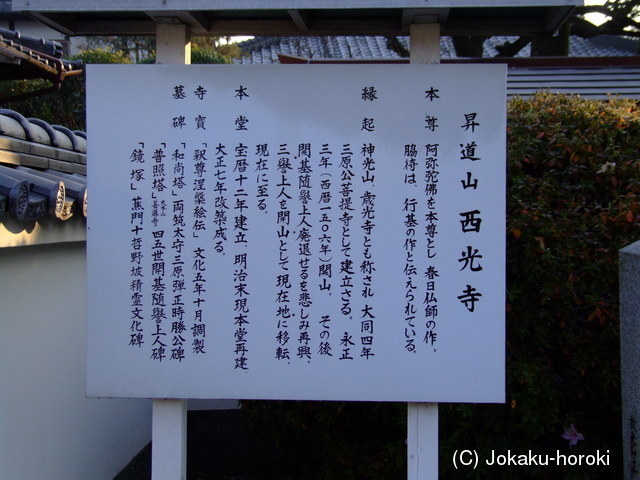 昇道山 西光寺
本尊 阿弥陀佛を本尊とし 春日仏師の作。
脇待は、行基の作と伝えられている。
縁起 神光山、歳光寺とも称され 大同四年
三原公菩提寺として建立さる。永正
三年（西暦一五〇六年）関山。その後
開基随譽上人廃退せるを悲しみ再興、
三譽上人を開山として現在地に移転、
現在に至る。
本堂 宝暦十二年建立、明治末現本堂再建
大正七年改築成る。
寺寳 「釈尊涅槃絵伝」文化五年十月調製
墓碑 「和尚塔」両筑太守三原弾正時勝公碑
「普照塔」 四五世開基随譽上人碑
「鏡塚」蕉門十哲野坡精霊文化碑
(C) Jokaku-horoki